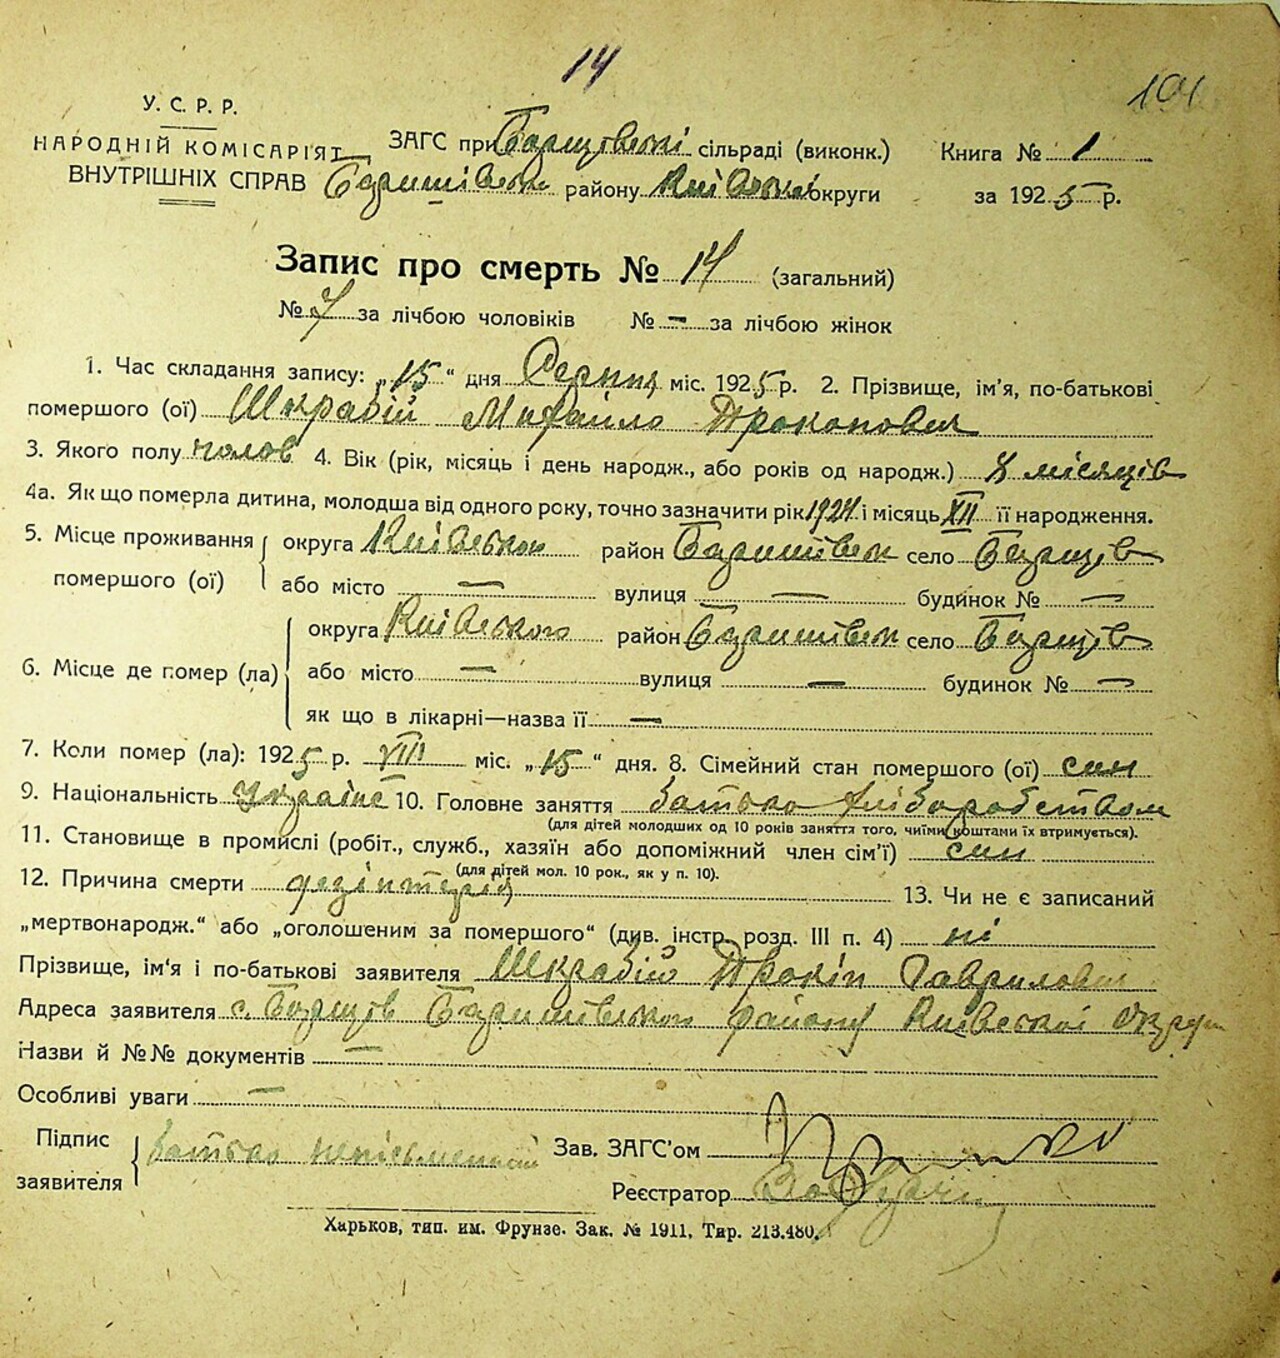 14
101
У. С. Р. Р.
НАРОДНІЙ КОМІСАРІЯТ
ВНУТРІШНІХ СПРАВ
ЗАГС при Борщівські сільраді (виконк.) Книга № 1
Баришівськ району Київської округи за 1925 р.
Запис про смерть № 14 (загальний)
№ 7 за лічбою чоловіків № — за лічбою жінок
1. Час складання запису: „15“ дня Серпня міс. 1925 р. 2. Прізвище, ім'я, по-батькові
помершого (ої) Шкрабій Михайло Прокопович
3. Якого полу чолов 4. Вік (рік, місяць і день народж., або років од народж.) 8 місяців
4а. Як що померла дитина, молодша від одного року, точно зазначити рік 1924 і місяць XII її народження.
5. Місце проживання помершого (ої) округа Київської район Баришівськ село Борщів
або місто — вулиця — будинок № —
6. Місце де помер (ла) округа Київського район Баришівськ село Борщів
або місто — вулиця — будинок № —
як що в лікарні—назва її —
7. Коли помер (ла): 1925 р. VIII міс. „15“ дня. 8. Сімейний стан помершого (ої) син
9. Національність Українс 10. Головне заняття батько хліборобством
(для дітей молодших од 10 років заняття того, чиїми коштами їх втримується).
11. Становище в промислі (робіт., служб., хазяїн або допоміжний член сім'ї) син
(для дітей мол. 10 рок., як у п. 10).
12. Причина смерти дезінтерія 13. Чи не є записаний
„мертвонародж.“ або „оголошеним за помершого“ (див. інстр. розд. III п. 4) ні
Прізвище, ім'я і по-батькові заявителя Шкрабій Прокіп Гаврилович
Адреса заявителя с. Борщів Баришівськой району Київської Округи
Назви й №№ документів —
Особливі уваги —
Підпис заявителя батько неписьменний Зав. ЗАГС'ом
Реєстратор
Харьков, тип. им. Фрунзе. Зак. № 1911, Тир. 213.480.